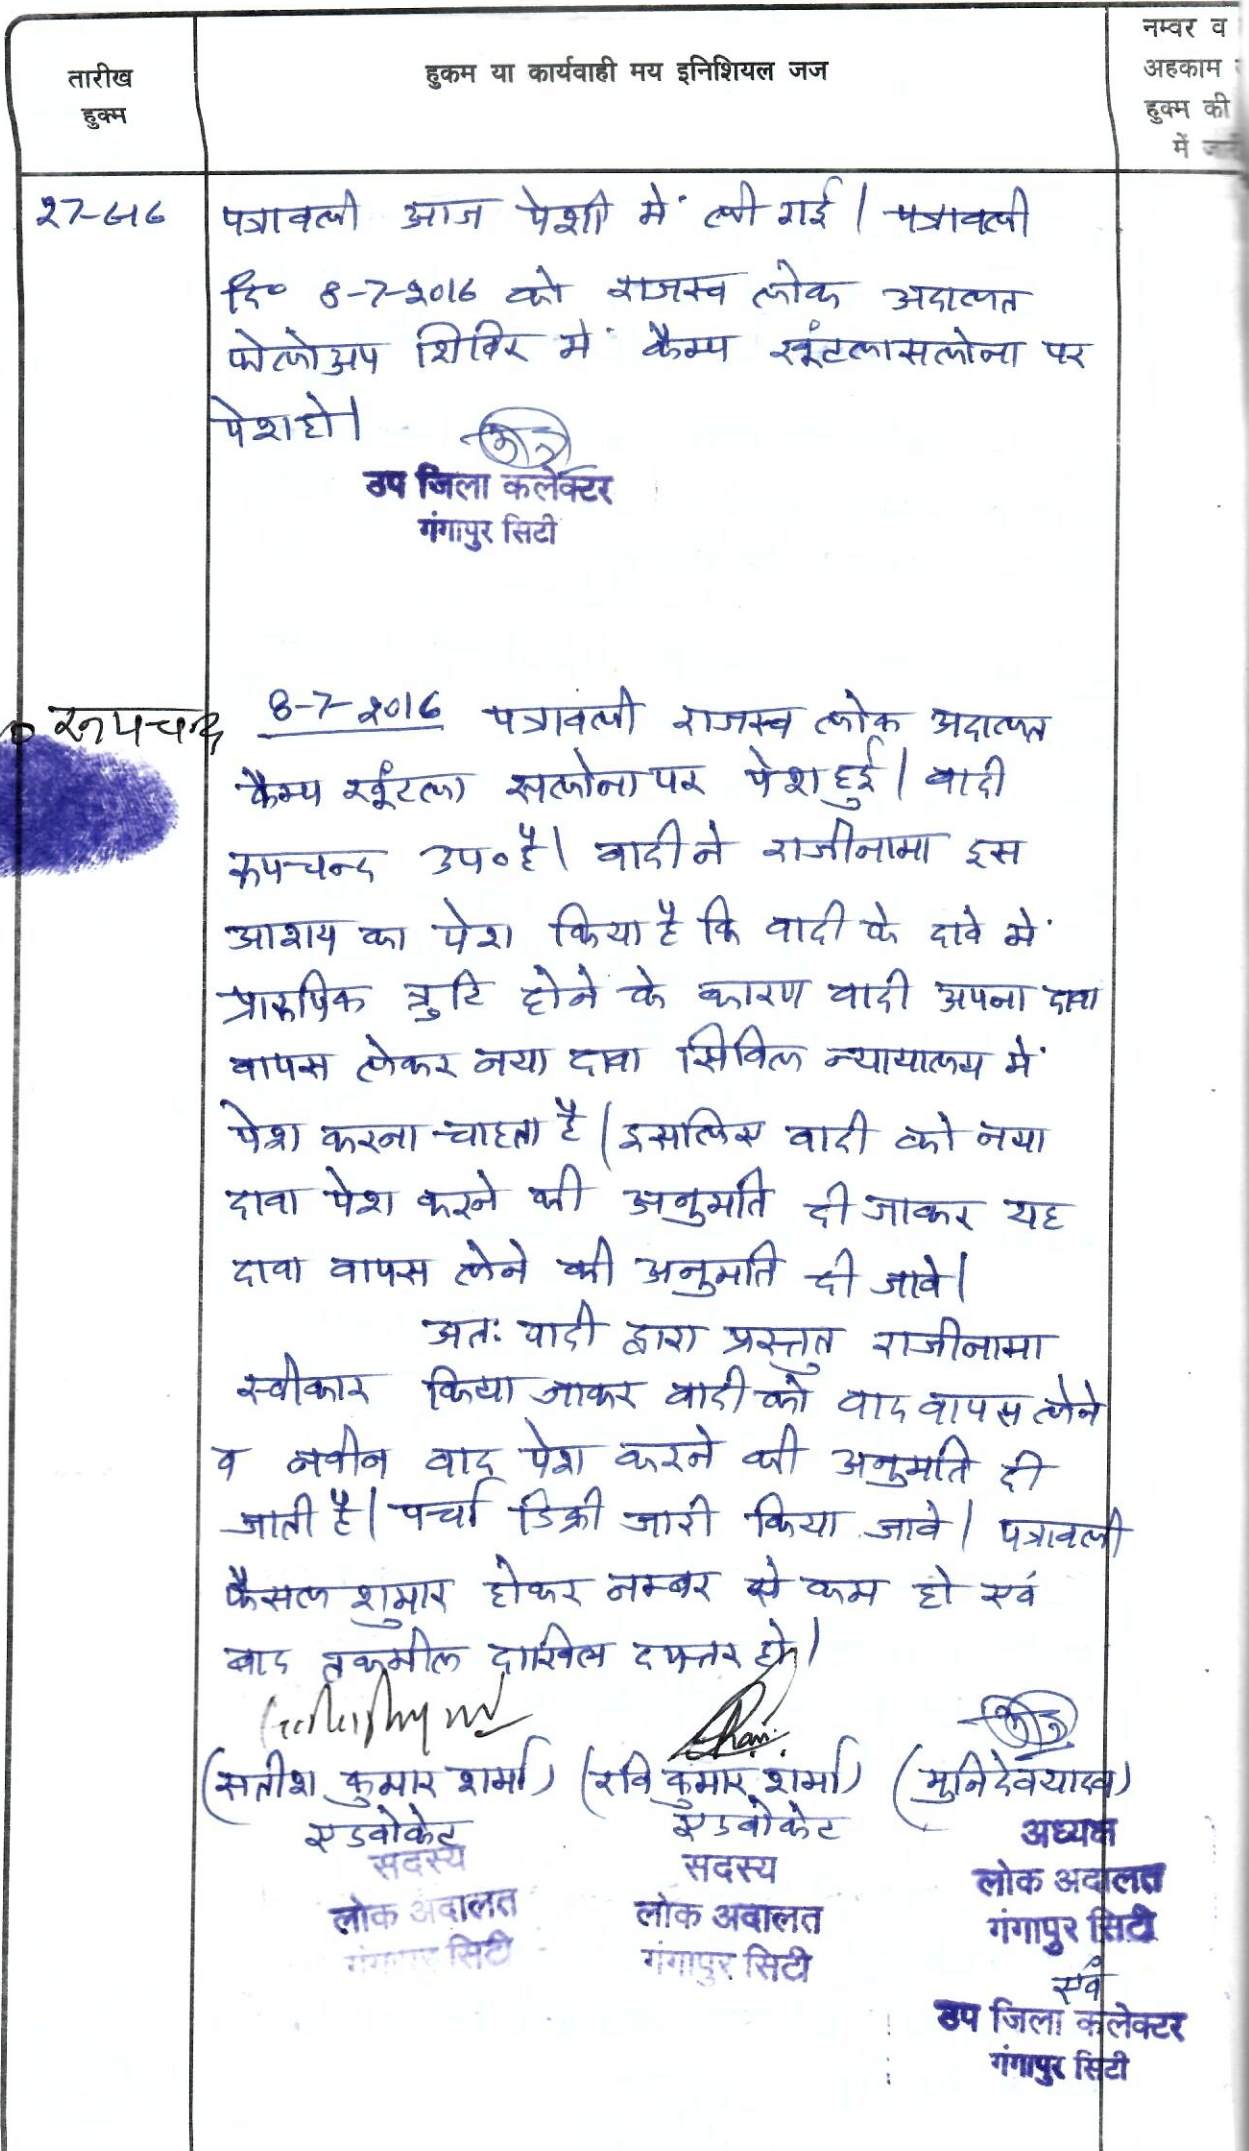 तारीख
हुक्म
हुकम या कार्यवाही मय इनिशियल जज
नम्वर व
अहकाम
हुक्म की
में
27-6-16
पत्रावली आज पेशी में ली गई। पत्रावली
दि० 8-7-2016 को राजस्व लोक अदालत
फोलोअप शिविर में कैम्प खूंटलासलोना पर
पेश हो।
उप जिला कलेक्टर
गंगापुर सिटी
रूपचन्द
8-7-2016 पत्रावली राजस्व लोक अदालत
कैम्प खूंटला सलोना पर पेश हुई। वादी
रूपचन्द उप० है। वादी ने राजीनामा इस
आशय का पेश किया है कि वादी के दावे में
प्रारूपिक त्रुटि होने के कारण वादी अपना दावा
वापस लेकर नया दावा सिविल न्यायालय में
पेश करना चाहता है। इसलिए वादी को नया
दावा पेश करने की अनुमति दी जाकर यह
दावा वापस लेने की अनुमति दी जावे।
अतः वादी द्वारा प्रस्तुत राजीनामा
स्वीकार किया जाकर वादी को वाद वापस लेने
व नवीन वाद पेश करने की अनुमति दी
जाती है। पर्चा डिक्री जारी किया जावे। पत्रावली
फैसल शुमार होकर नम्बर से कम हो एवं
बाद तकमील दाखिल दफ्तर हो।
(सतीश कुमार शर्मा) (रवि कुमार शर्मा) (मुनिदेव यादव)
एडवोकेट एडवोकेट अध्यक्ष
सदस्य सदस्य लोक अदालत
लोक अदालत लोक अदालत गंगापुर सिटी
गंगापुर सिटी गंगापुर सिटी एवं
उप जिला कलेक्टर
गंगापुर सिटी